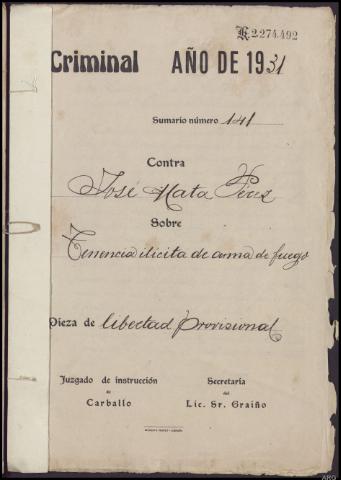 K 2.274.492
Criminal AÑO DE 1931
Sumario número 141
Contra
José Mata Pérez
Sobre
Tenencia ilícita de arma de fuego
Pieza de libertad provisional
Juzgado de instrucción
de
Carballo
Secretaría
del
Lic. Sr. Graiño
ARG